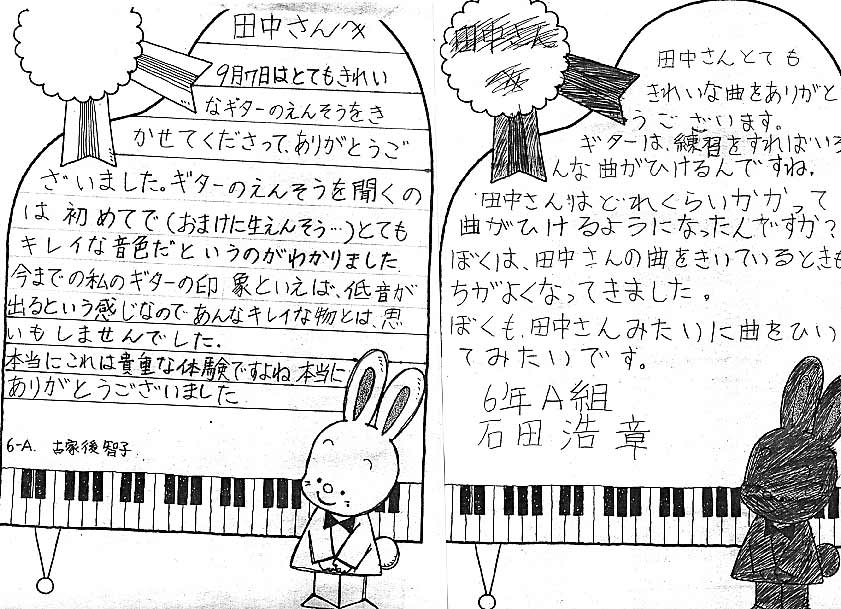 田中さんへ
9月7日はとてもきれい
なギターのえんそうをき
かせてくださって、ありがとうご
ざいました。ギターのえんそうを聞くの
は初めてで(おまけに生えんそう…)とても
キレイな音色だというのがわかりました
今までの私のギターの印象といえば、低音が
出るという感じなのであんなキレイな物とは、思
いもしませんでした.
本当にこれは貴重な体験ですよね 本当に
ありがとうございました
6-A. 古家後智子
田中さん
へ
田中さんとても
きれいな曲をありがと
うございます。
ギターは、練習をすればいろ
んな曲がひけるんですね。
田中さんはどれくらいかかって
曲がひけるようになったんですか?
ぼくは、田中さんの曲をきいているときも
ちがよくなってきました。
ぼくも、田中さんみたいに曲をひい
てみたいです。
6年A組
石田浩章